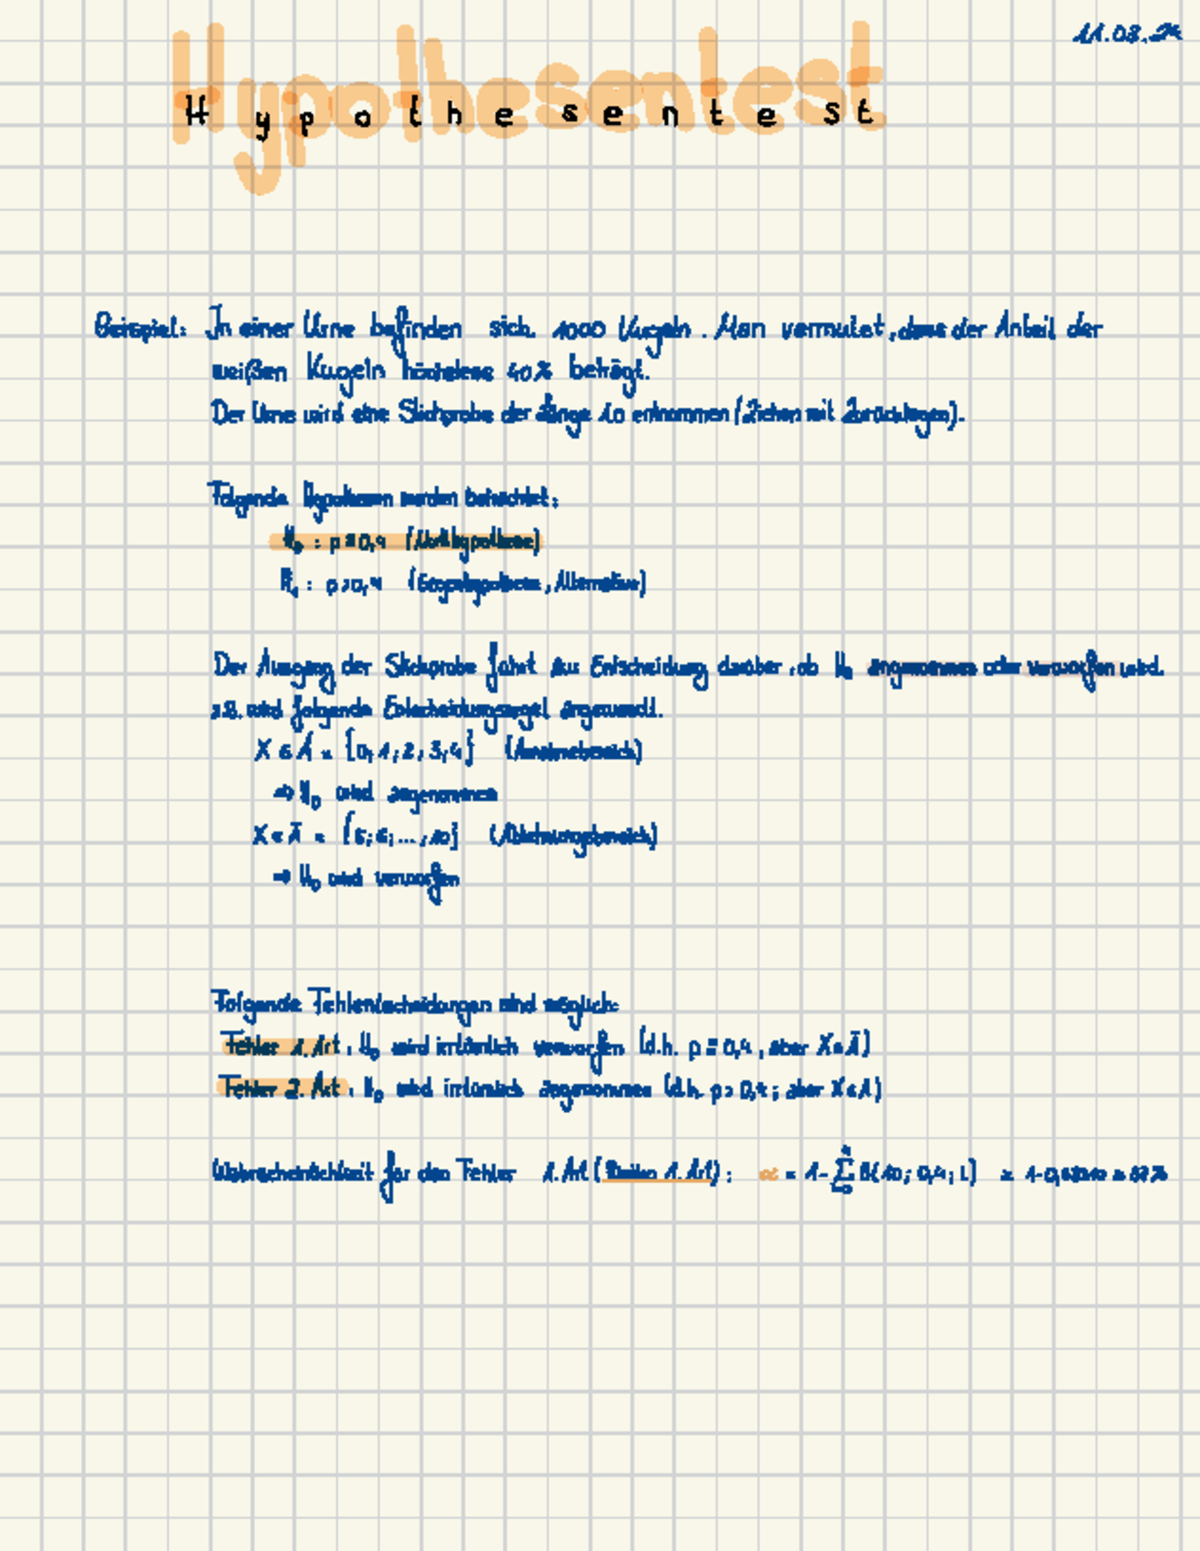 11.03.24
Hypothesentest
Beispiel: In einer Urne befinden sich 1000 Kugeln. Man vermutet, dass der Anteil der
weißen Kugeln höchstens 40% beträgt.
Der Urne wird eine Stichprobe der Länge 10 entnommen (Ziehen mit Zurücklegen).
Folgende Hypothesen werden betrachtet:
H₀ : p ≤ 0,4 (Nullhypothese)
H₁ : p > 0,4 (Gegenhypothese, Alternative)
Der Ausgang der Stichprobe führt zur Entscheidung darüber, ob H₀ angenommen oder verworfen wird.
z.B. wird folgende Entscheidungsregel angewandt.
X ∈ A = {0; 1; 2; 3; 4} (Annahmebereich)
⇒ H₀ wird angenommen
X ∈ Ā = {5; 6; ...; 10} (Ablehnungsbereich)
⇒ H₀ wird verworfen
Folgende Fehlentscheidungen sind möglich:
Fehler 1. Art: H₀ wird irrtümlich verworfen (d.h. p ≤ 0,4, aber X ∈ Ā)
Fehler 2. Art: H₀ wird irrtümlich angenommen (d.h. p > 0,4; aber X ∈ A)
Wahrscheinlichkeit für den Fehler 1. Art (Risiko 1. Art): α = 1 - Σ B(10; 0,4; i) = 1 -